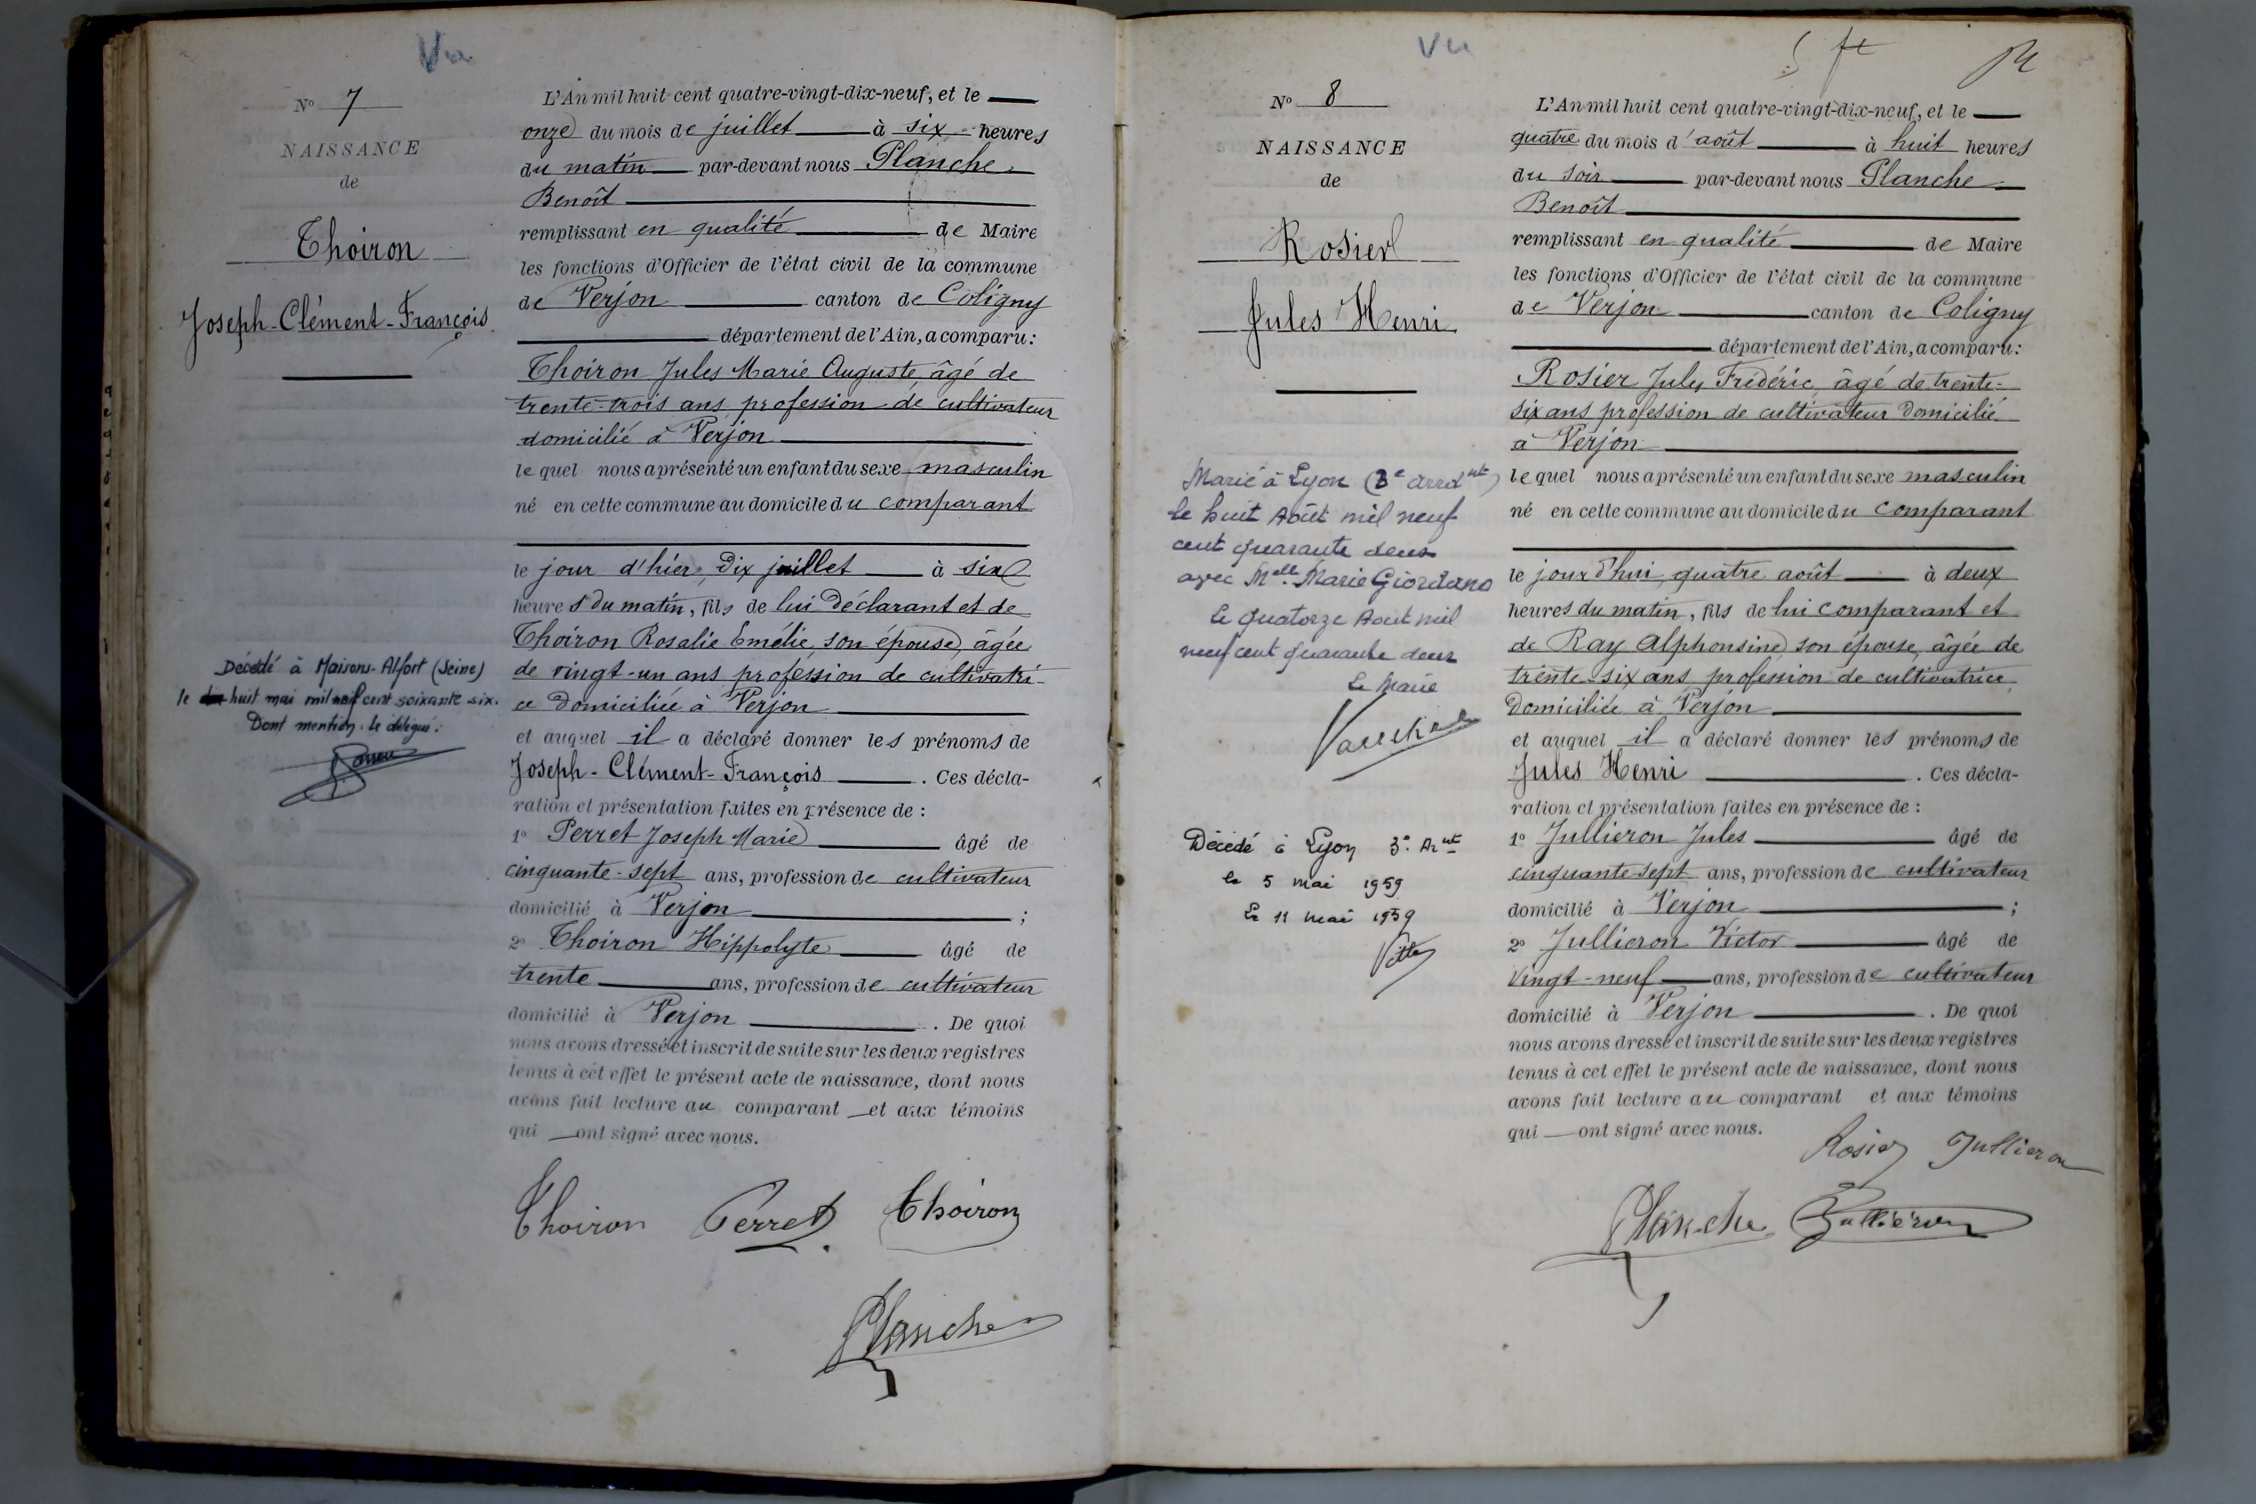 Vu
N° 7
NAISSANCE
de
Thoiron
Joseph-Clément-François
Décédé à Maisons-Alfort (Seine)
le huit mai mil neuf cent soixante six.
Dont mention. Le délégué :
L'An mil huit cent quatre-vingt-dix-neuf, et le
onze du mois de juillet à six heures
du matin par-devant nous Planche
Benoît
remplissant en qualité de Maire
les fonctions d'Officier de l'état civil de la commune
de Verjon canton de Coligny
département de l'Ain, a comparu :
Thoiron Jules Marie Auguste âgé de
trente-trois ans profession de cultivateur
domicilié à Verjon
lequel nous a présenté un enfant du sexe masculin
né en cette commune au domicile du comparant
le jour d'hier, dix juillet à six
heures du matin, fils de lui Déclarant et de
Thoiron Rosalie Emélie, son épouse, âgée
de vingt-un ans profession de cultivatri-
ce domiciliée à Verjon
et auquel il a déclaré donner les prénoms de
Joseph-Clément-François . Ces décla-
ration et présentation faites en présence de :
1° Perret Joseph Marie âgé de
cinquante-sept ans, profession de cultivateur
domicilié à Verjon ;
2° Thoiron Hippolyte âgé de
trente ans, profession de cultivateur
domicilié à Verjon . De quoi
nous avons dressé et inscrit de suite sur les deux registres
tenus à cet effet le présent acte de naissance, dont nous
avons fait lecture au comparant et aux témoins
qui ont signé avec nous.
Thoiron Perret Thoiron
Planche
Vu
N° 8
NAISSANCE
de
Rosier
Jules Henri
Marié à Lyon (3e arrdnt)
le huit Août mil neuf
cent quarante deux
avec Melle Marie Giordano
Le quatorze Aout mil
neuf cent quarante deux
Le Maire
Décédé à Lyon 3e Arnt
le 5 mai 1959
Le 11 mai 1959
L'An mil huit cent quatre-vingt-dix-neuf, et le
quatre du mois d'août à huit heures
du soir par-devant nous Planche
Benoît
remplissant en qualité de Maire
les fonctions d'Officier de l'état civil de la commune
de Verjon canton de Coligny
département de l'Ain, a comparu :
Rosier July Frédéric, âgé de trente-
six ans profession de cultivateur domicilié
à Verjon
lequel nous a présenté un enfant du sexe masculin
né en cette commune au domicile du comparant
le jour d'hui, quatre août à deux
heures du matin, fils de lui comparant et
de Ray Alphonsine son épouse, âgée de
trente-six ans profession de cultivatrice
Domiciliée à Verjon
et auquel il a déclaré donner les prénoms de
Jules Henri . Ces décla-
ration et présentation faites en présence de :
1° Jullieron Jules âgé de
cinquante-sept ans, profession de cultivateur
domicilié à Verjon ;
2° Jullieron Victor âgé de
vingt-neuf ans, profession de cultivateur
domicilié à Verjon . De quoi
nous avons dressé et inscrit de suite sur les deux registres
tenus à cet effet le présent acte de naissance, dont nous
avons fait lecture au comparant et aux témoins
qui ont signé avec nous.
Rosier Jullieron
Planche Jullieron